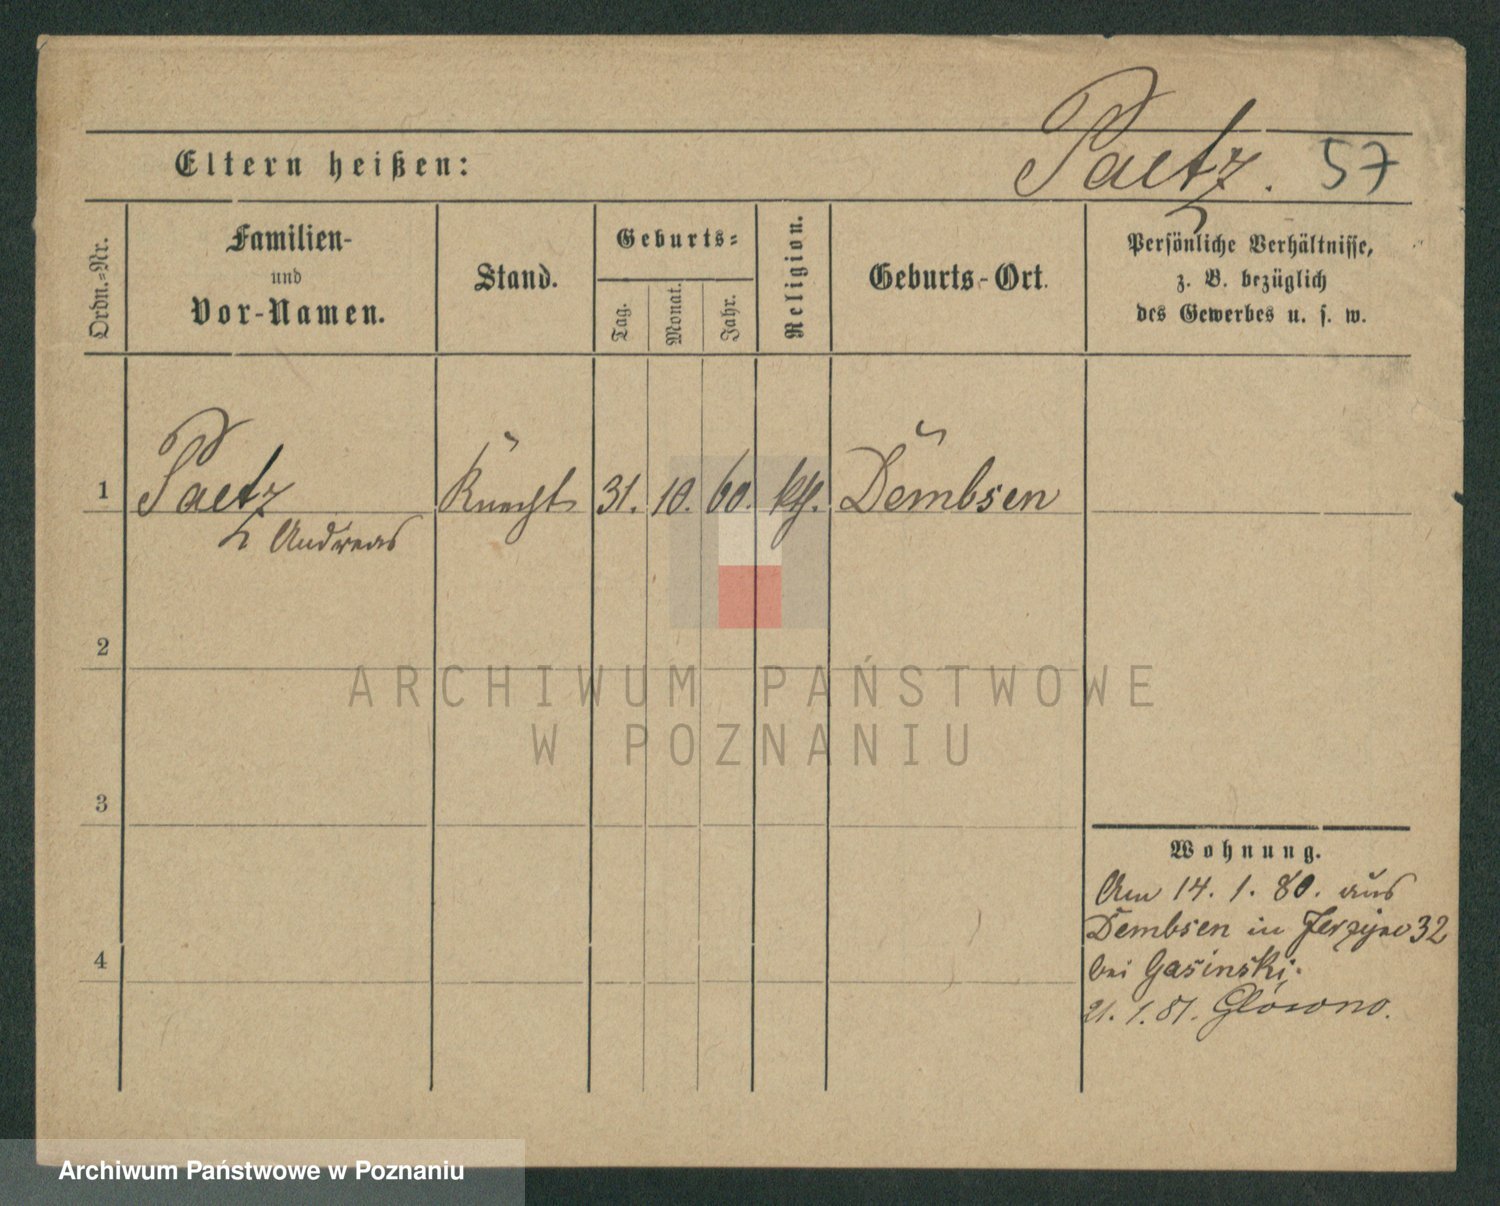 Paetz. 57
Eltern heißen:
Ordn.-Nr.
Familien-
und
Vor-Namen.
Stand.
Geburts-
Tag.
Monat.
Jahr.
Religion.
Geburts-Ort.
Persönliche Verhältnisse,
z. B. bezüglich
des Gewerbes u. s. w.
1 Paetz Knecht 31. 10. 60. kth. Dembsen
Andreas
2
3
4
Wohnung.
Am 14. 1. 80. aus
Dembsen in Jerzyce 32
bei Gasinski.
21. 1. 81. Glówno.
ARCHIWUM PAŃSTWOWE
W POZNANIU
Archiwum Państwowe w Poznaniu